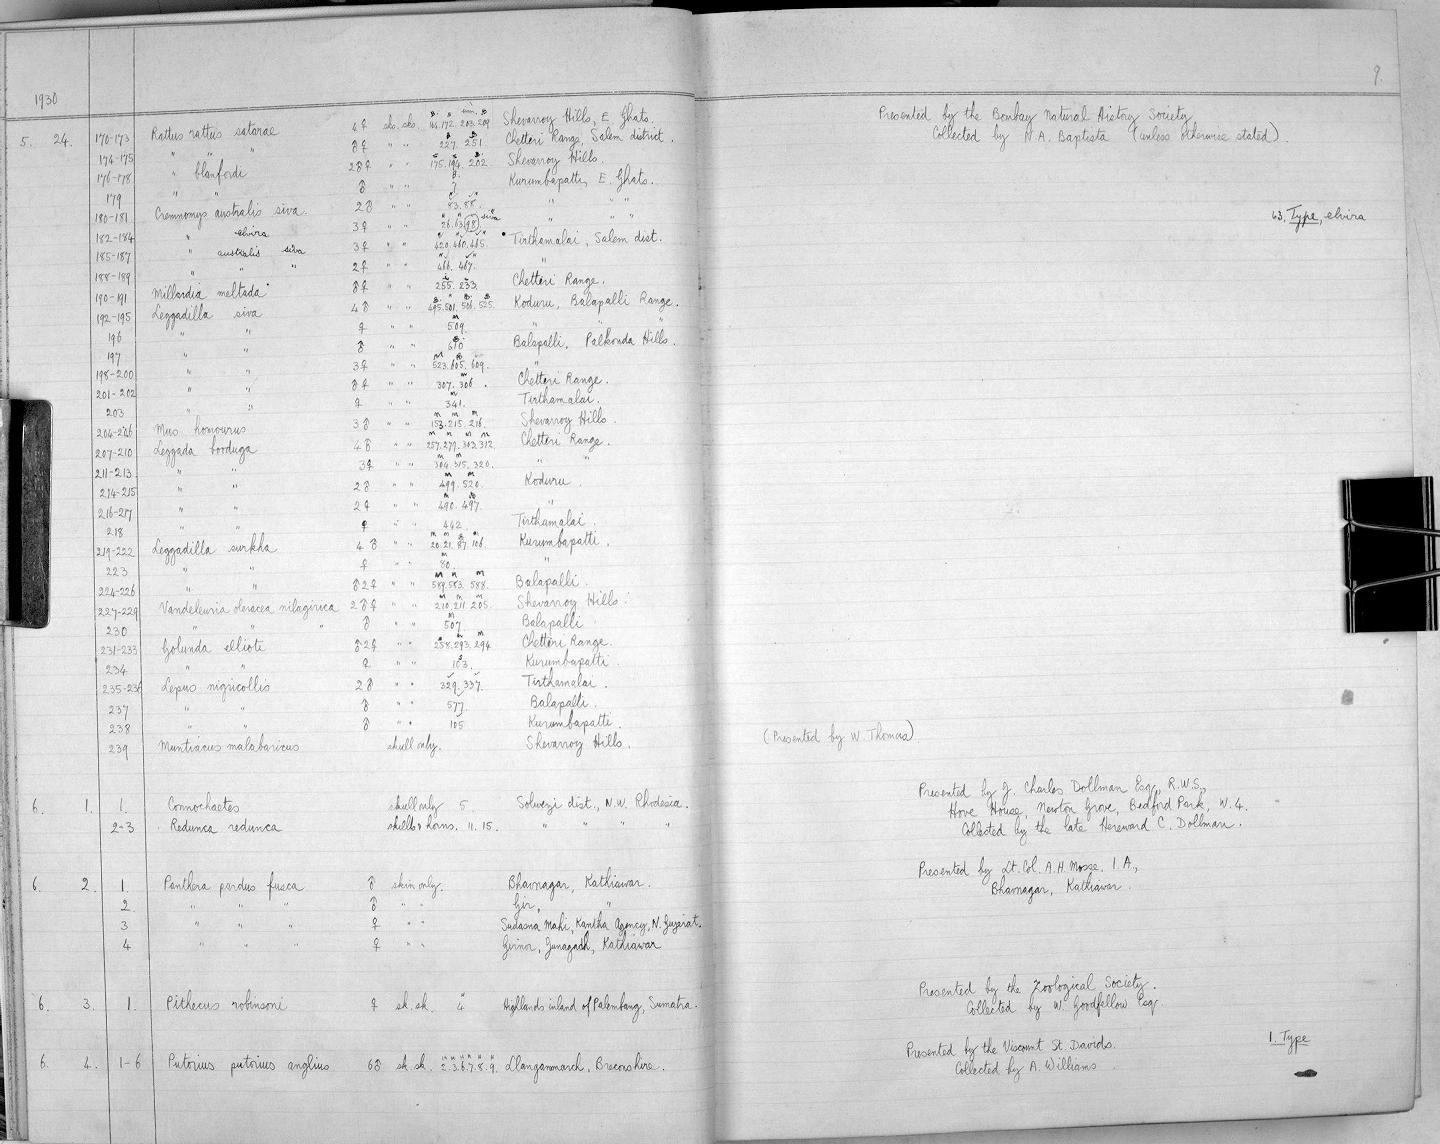 9.
1930
5. 24. 170-173 Rattus rattus satarae 4♀ sks. sks. 172. 203. 209 Shevarroy Hills, E. Ghats. Presented by the Bombay Natural History Society
174-175 " " " ♂♀ " " 227. 251 Chetteri Range, Salem district. Collected by N. A. Baptista (unless otherwise stated).
176-178 " blanfordi 2♂♀ " " 175. 194. 202 Shevarroy Hills.
179 " " ♂ " " 7 Kurumbapatti, E. Ghats.
180-181 Cremnomys australis siva. 2♂ " " 83. 88. " " "
182-184 " elvira 3♀ " " 26. 63. 98 siva " " " 63. Type, elvira
185-187 " australis siva 3♀ " " 420. 460. 465. Tirthamalai, Salem dist.
188-189 " " " 2♀ " " 466. 467. "
190-191 Millardia meltada ♂♀ " " 255. 233. Chetteri Range.
192-195 Leggadilla siva 4♂ " " 495. 501. 506. 525. Koduru, Balapalli Range.
196 " " ♀ " " 509. " " "
197 " " ♂ " " 610 Balapalli, Palkonda Hills.
198-200 " " 3♀ " " 523. 605. 609. "
201-202 " " ♂♀ " " 307. 306. Chetteri Range.
203 " " ♀ " " 341. Tirthamalai.
204-206 Mus homourus 3♂ " " 153. 215. 216. Shevarroy Hills.
207-210 Leggada booduga 4♂ " " 257. 279. 303. 312. Chetteri Range.
211-213 " " 3♀ " " 304. 315. 320. " "
214-215 " " 2♂ " " 499. 520. Koduru.
216-217 " " 2♀ " " 490. 497. "
218 " " ♀ " " 442. Tirthamalai.
219-222 Leggadilla surkha 4♂ " " 20. 21. 87. 106. Kurumbapatti.
223 " " ♀ " " 80. "
224-226 " " ♂2♀ " " 589. 583. 588. Balapalli.
227-229 Vandeleuria oleracea nilagirica 2♂♀ " " 210. 211. 205. Shevarroy Hills.
230 " " " ♂ " " 507. Balapalli.
231-233 Golunda ellioti ♂2♀ " " 258. 293. 294 Chetteri Range.
234 " " ♀ " " 103. Kurumbapatti.
235-236 Lepus nigricollis 2♂ " " 329. 337. Tirthamalai.
237 " " ♂ " " 577. Balapalli.
238 " " ♂ " " 105 Kurumbapatti.
239 Muntiacus malabaricus skull only. Shevarroy Hills. (Presented by W. Thomas)
6. 1. 1. Connochaetes skull only 5 Solwezi dist., N.W. Rhodesia. Presented by J. Charles Dollman Esq., R.W.S.,
Hove House, Newton Grove, Bedford Park, W.4.
2-3 Redunca redunca skulls & horns. 11. 15. " " " " Collected by the late Hereward C. Dollman.
6. 2. 1. Panthera pardus fusca ♂ skin only. Bhavnagar, Kathiawar. Presented by Lt. Col. A. H. Mosse, I.A.,
Bhavnagar, Kathiawar.
2. " " " ♂ " " Gir, "
3 " " " ♀ " " Sudasna Mahi, Kantha Agency, N. Gujerat.
4 " " " ♀ " " Girnar, Junagadh, Kathiawar
6. 3. 1. Pithecus robinsoni ♀ sk. sk. 4 Highlands inland of Palembang, Sumatra. Presented by the Zoological Society.
Collected by W. Goodfellow Esq.
6. 4. 1-6 Putorius putorius anglius 6♂ sk. sk. 2. 3. 6. 7. 8. 9. Llangammarch, Breconshire. Presented by the Viscount St. Davids. 1. Type
Collected by A. Williams